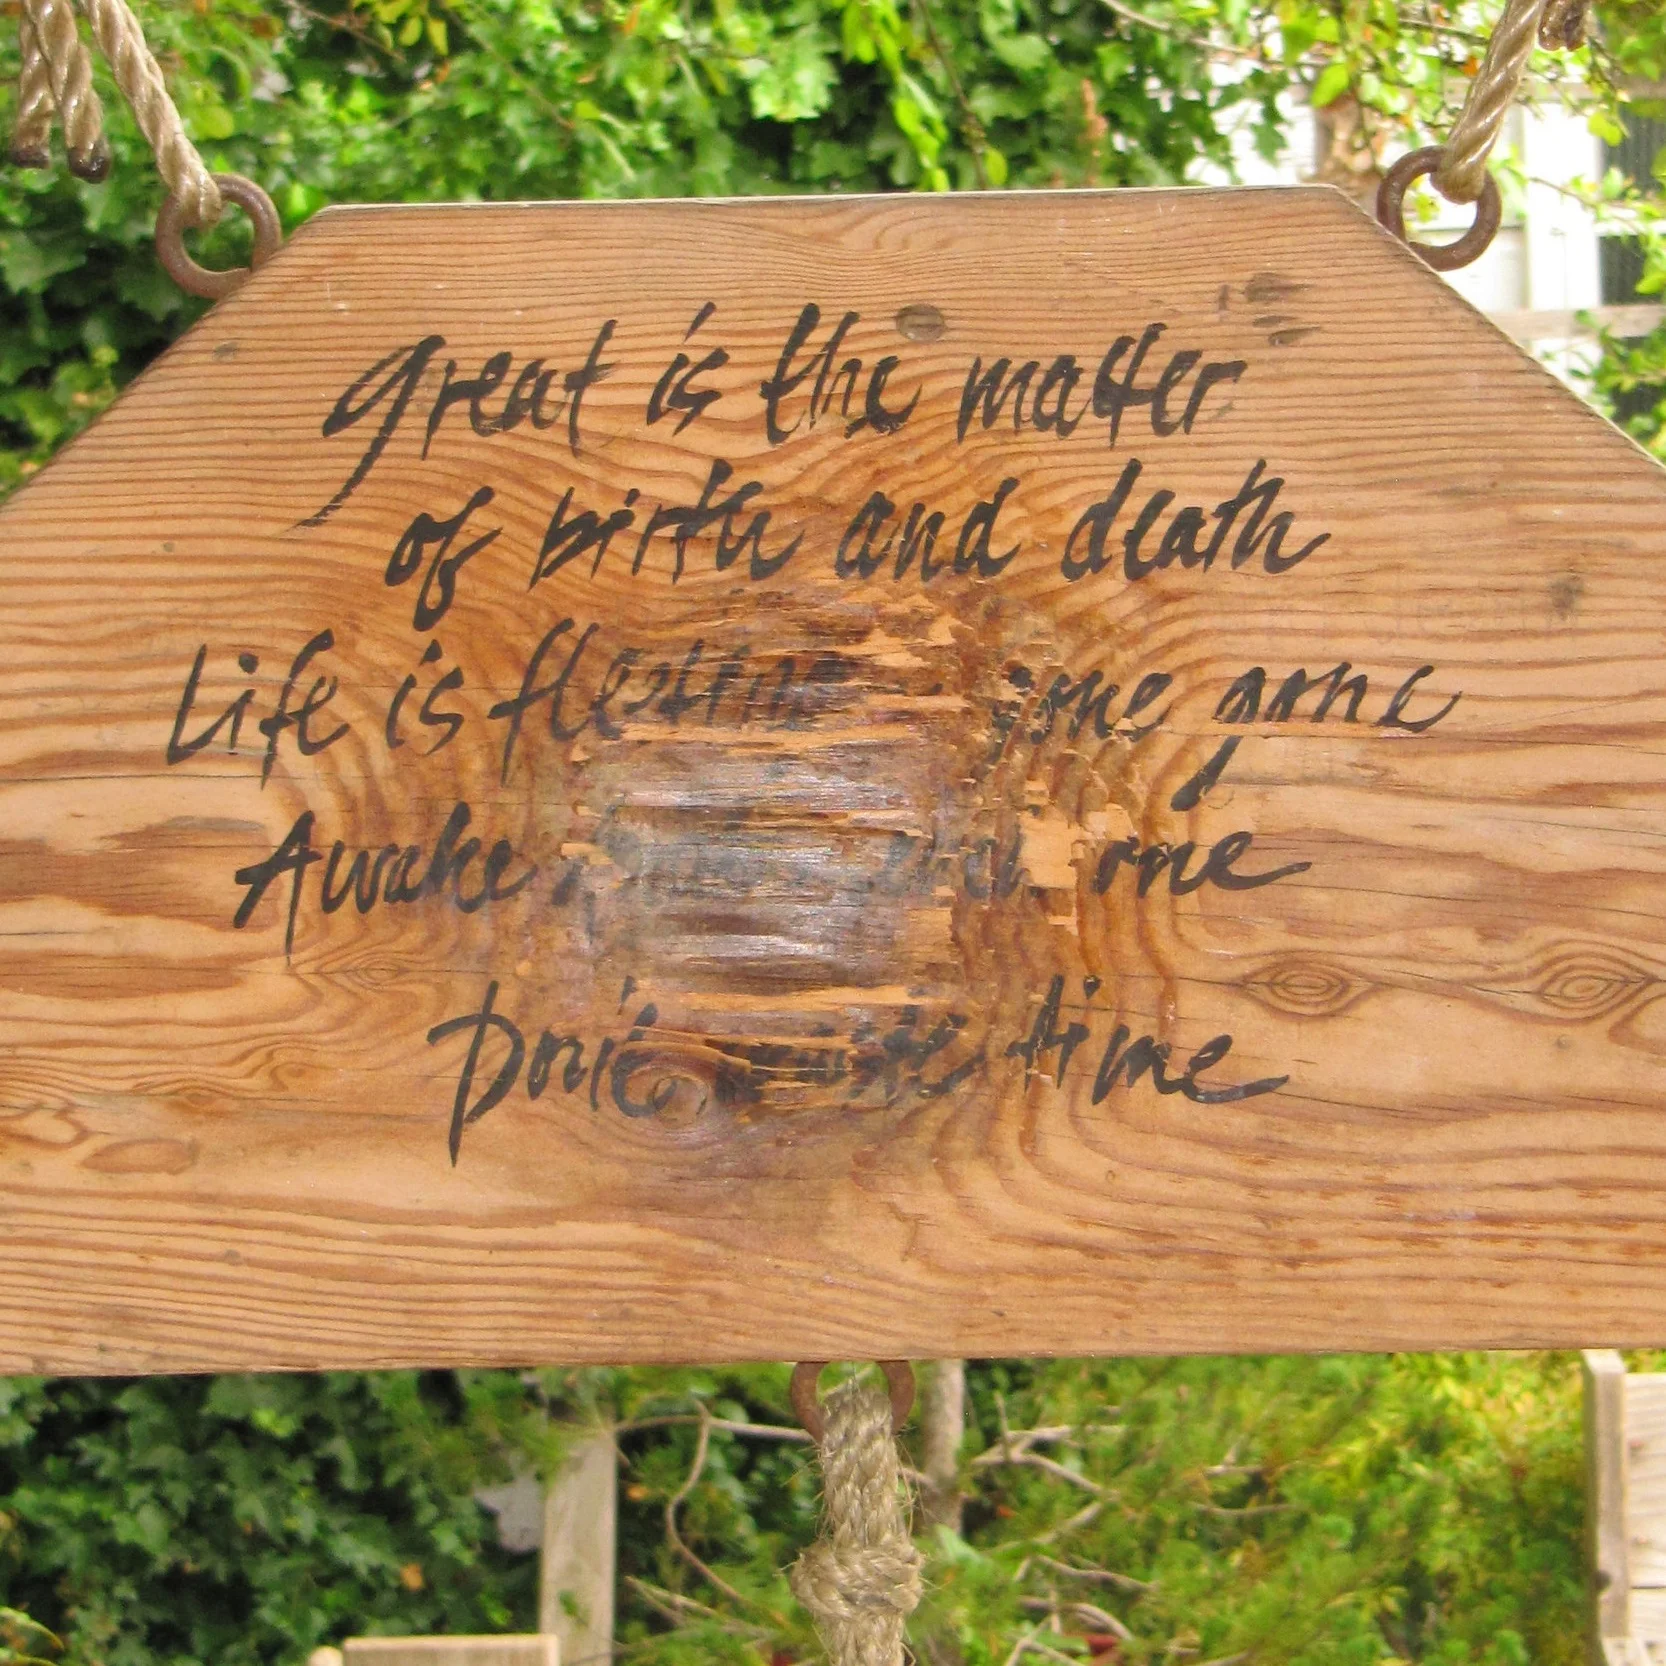 Great is the matter
of birth and death
Life is fleeting gone gone
Awake each one
Don't waste time